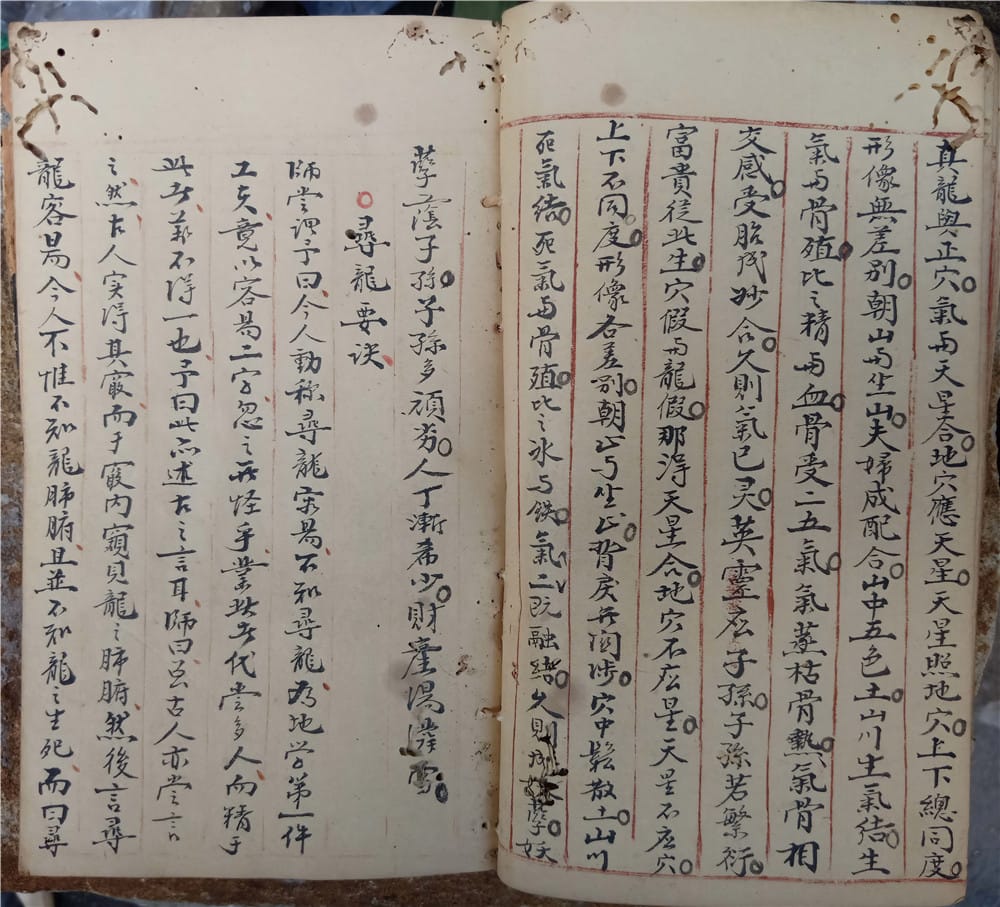 真龍與正穴。氣与天星合。地穴應天星。天星照地穴。上下總同度。
形像無差别。朝山与坐山。夫婦成配合。山中五色土。山川生氣結。生
氣与骨殖。比之精与血。骨受二五氣。氣蒸枯骨熱。氣骨相
交感。受胎成妙合。久則氣已灵。英靈应子孫。子孫若繁衍。
富貴徒此生。穴假与龍假。那淂天星合。地穴不应星。天星不应穴。
上下不同度。形像各差别。朝山与坐山。背戾无関涉。穴中鬆散土。山川
死氣結。死氣与骨殖。比之冰与鉄。氣二既融結。久則成孽。妖
孽蔭子孫。子孫多頑劣。人丁漸希少。財産湯潑雪。
尋龍要訣
師嘗謂予曰今人動称尋龍容易不知尋龍為地学第一件
工夫竟以容易二字忽之無怪乎業此者代嘗多人而精于
此者万不得一也予曰此亦述古之言耳師曰昔古人亦嘗言
之然古人实得其竅而于竅内窺見龍之肺腑然後言尋
龍容易今人不惟不知龍肺腑且並不知龍之生死而曰尋